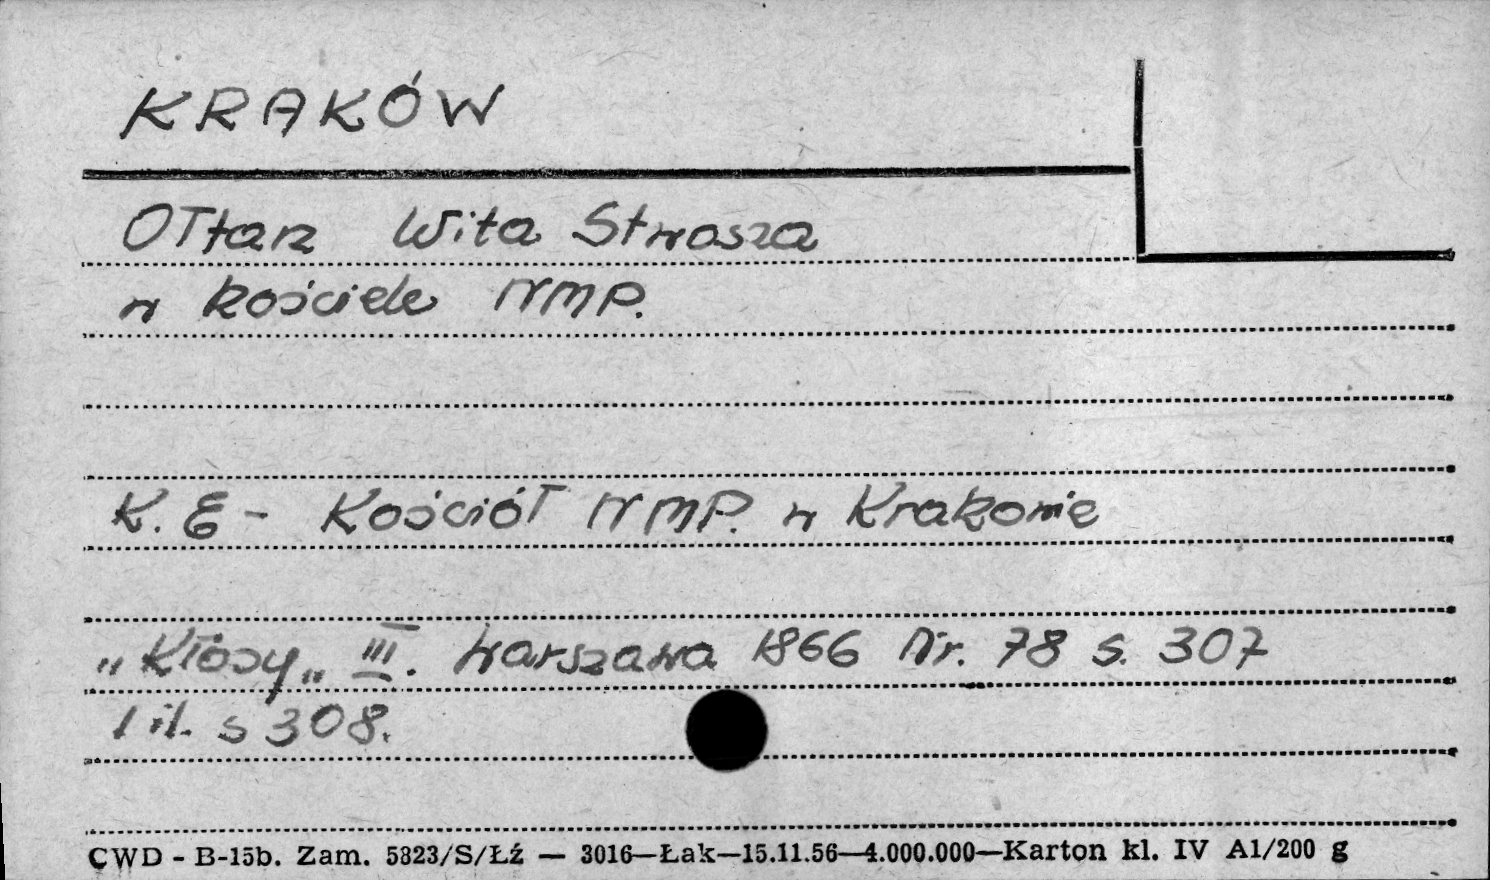 KRAKÓW
Ołtarz Wita Stwosza
w kościele NMP.
K. E - Kościół NMP. w Krakowie
„Kłosy„ III. Warszawa 1866 Nr. 78 s. 307
1 il. s 308.
CWD - B-15b. Zam. 5823/S/Łź — 3016—Łak—15.11.56—4.000.000—Karton kl. IV A1/200 g